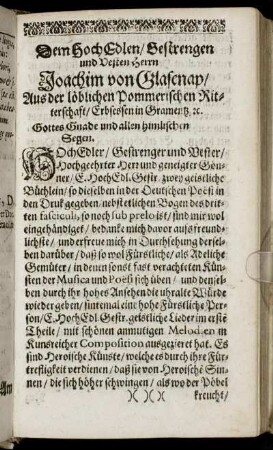 Dem HochEdlen/ Gestrengen
und Vesten Herrn
Joachim von Glasenap/
Aus der löblichen Pommerischen Rit-
terschaft/ Erbsessen in Gramentz. ꝛc.
Gottes Gnade und allen himlischen
Segen.
HOchEdler/ Gestrenger und Vester/
Hochgeehrter Herr und geneigter Gön-
ner/ E. HochEdl. Gestr. zwey geistliche
Büchlein/ so dieselben in der Deutschen Poësi in
den Druk gegeben/ nebst etlichen Bogen des drit-
ten fasciculi, so noch sub prelo ist/ sind mir wol
eingehändiget/ bedanke mich davor aufs freund-
lichste/ und erfreue mich in Durchsehung dersel-
ben darüber/ daß so wol Fürstliche/ als Adeliche
Gemüter/ in denen sonst fast verachteten Kün-
sten der Musica und Poësi sich üben/ und densel-
ben durch ihr hohes Ansehen die uhralte Würde
wieder geben/ sintemal eine hohe Fürstliche Per-
son/ E. HochEdl. Gestr. geistliche Lieder im erstē
Theile/ mit schönen anmutigen Melodien in
Kunsreicher Composition ausgezieret hat. Es
sind Heroische Künste/ welche es durch ihre Für-
trefligkeit verdienen/ daß sie von Heroischē Sin-
nen/ die sich höher schwingen/ als wo der Pöbel
)( )( )( kreucht/